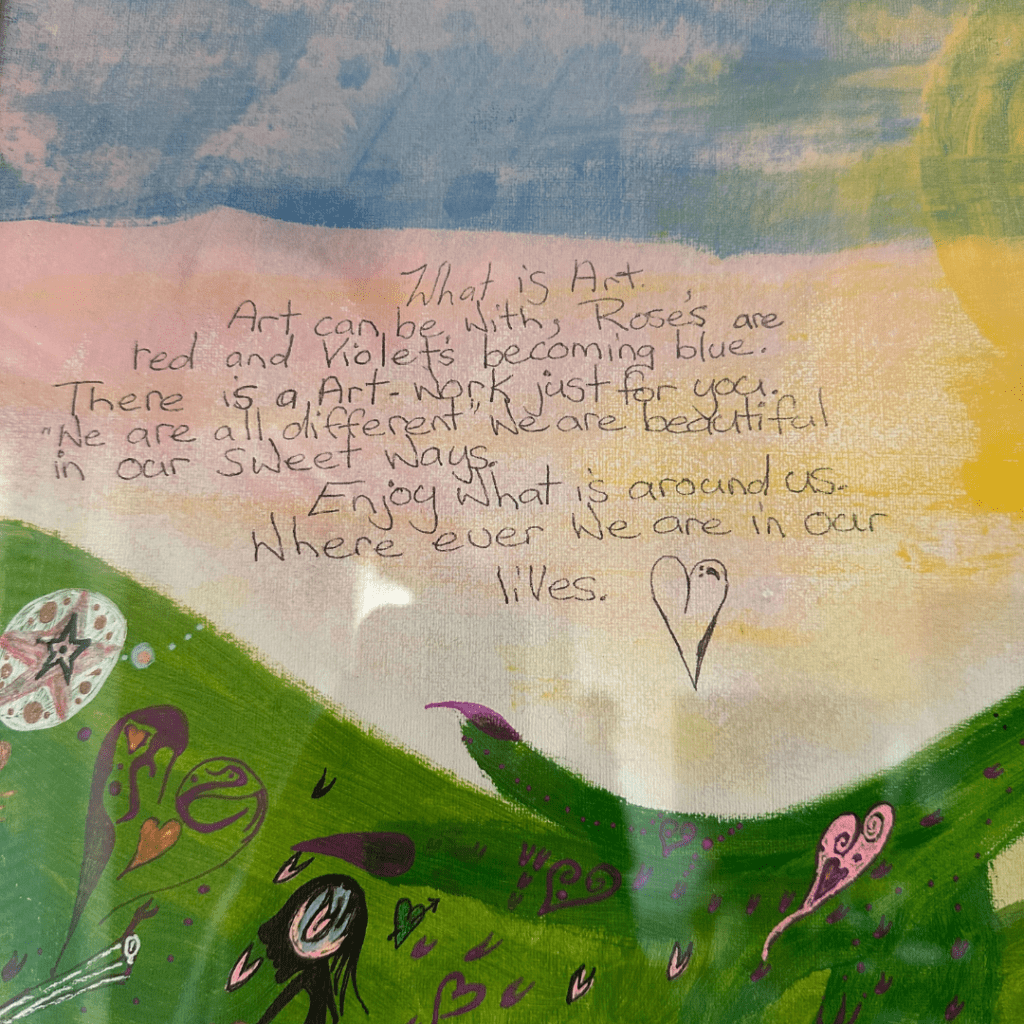 What is Art.
Art can be, With, Rose's are
red and Violet's becoming blue.
There is a Art-Work just for you.
"We are all different" We are beautiful
in our sweet ways.
Enjoy What is around us.
Where ever We are in our
lives.